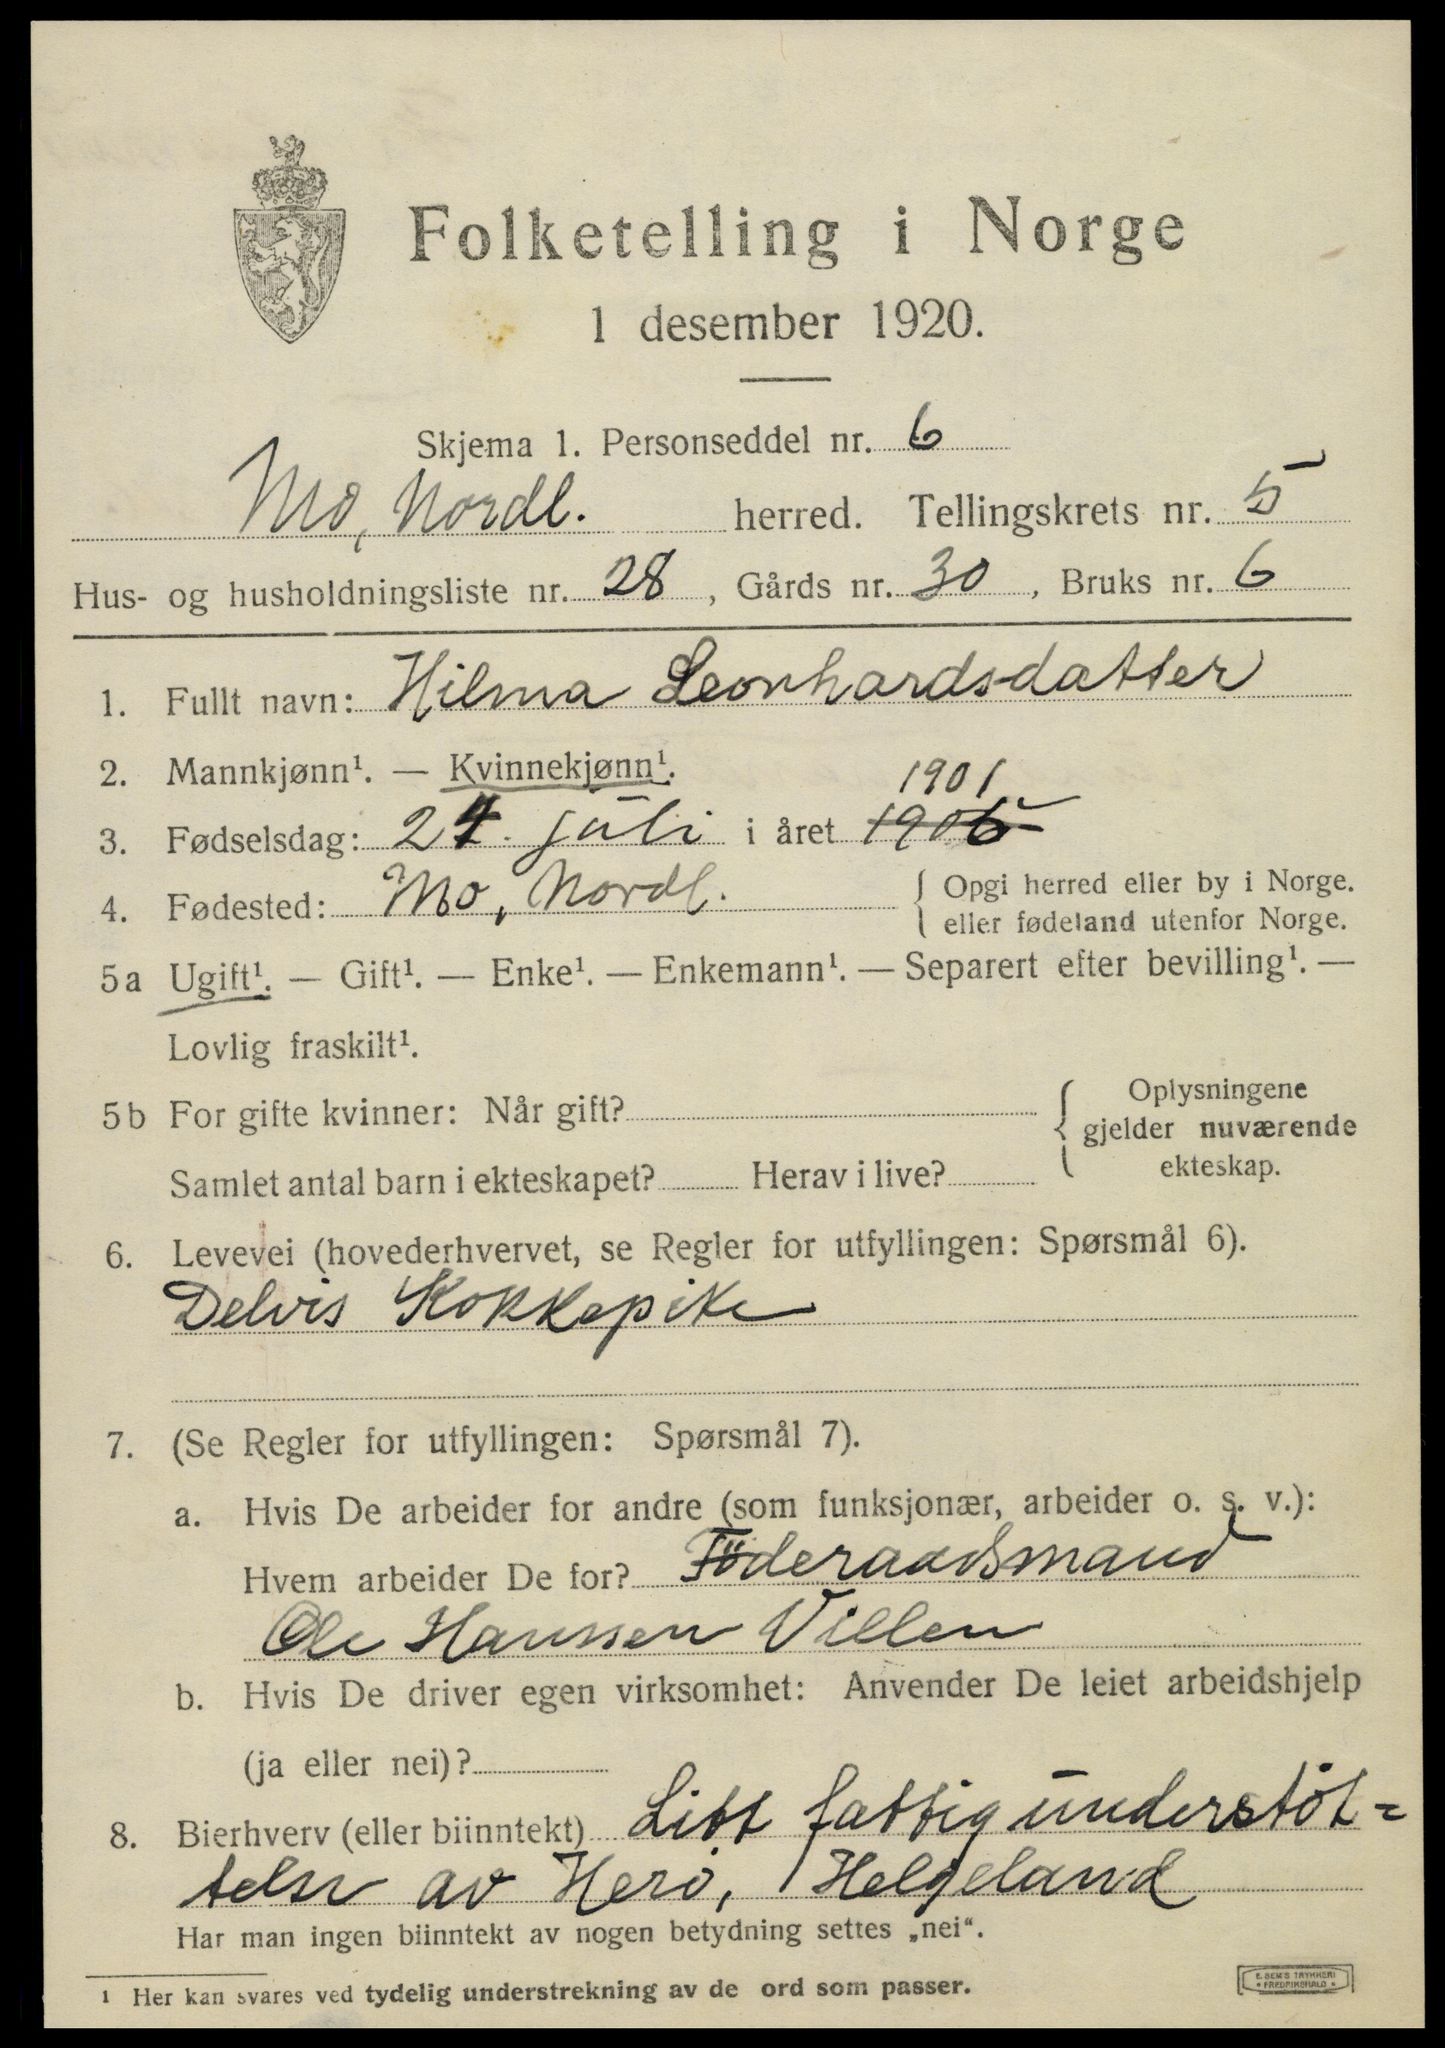 Folketelling i Norge
1 desember 1920.
Skjema 1. Personseddel nr. 6
Mo, Nordl. herred. Tellingskrets nr. 5
Hus- og husholdningsliste nr. 28, Gårds nr. 30, Bruks nr. 6
1. Fullt navn: Hilma Leonhardsdatter
2. Mannkjønn¹. — Kvinnekjønn¹.
1901
3. Fødselsdag: 24. juli i året 1906
4. Fødested: Mo, Nordl. { Opgi herred eller by i Norge.
eller fødeland utenfor Norge.
5a Ugift¹. — Gift¹. — Enke¹. — Enkemann¹. — Separert efter bevilling¹. —
Lovlig fraskilt¹.
5b For gifte kvinner: Når gift? { Oplysningene
gjelder nuværende
Samlet antal barn i ekteskapet? Herav i live? ekteskap.
6. Levevei (hovederhvervet, se Regler for utfyllingen: Spørsmål 6).
Delvis Kokkepike
7. (Se Regler for utfyllingen: Spørsmål 7).
a. Hvis De arbeider for andre (som funksjonær, arbeider o. s. v.):
Hvem arbeider De for? Föderaadsmand
Ole Hanssen Villen
b. Hvis De driver egen virksomhet: Anvender De leiet arbeidshjelp
(ja eller nei)?
8. Bierhverv (eller biinntekt) Litt fattigunderstöt=
telse av Herö, Helgeland
Har man ingen biinntekt av nogen betydning settes „nei“.
¹ Her kan svares ved tydelig understrekning av de ord som passer.
E. SEM'S TRYKKERI
• FREDRIKSHALD •